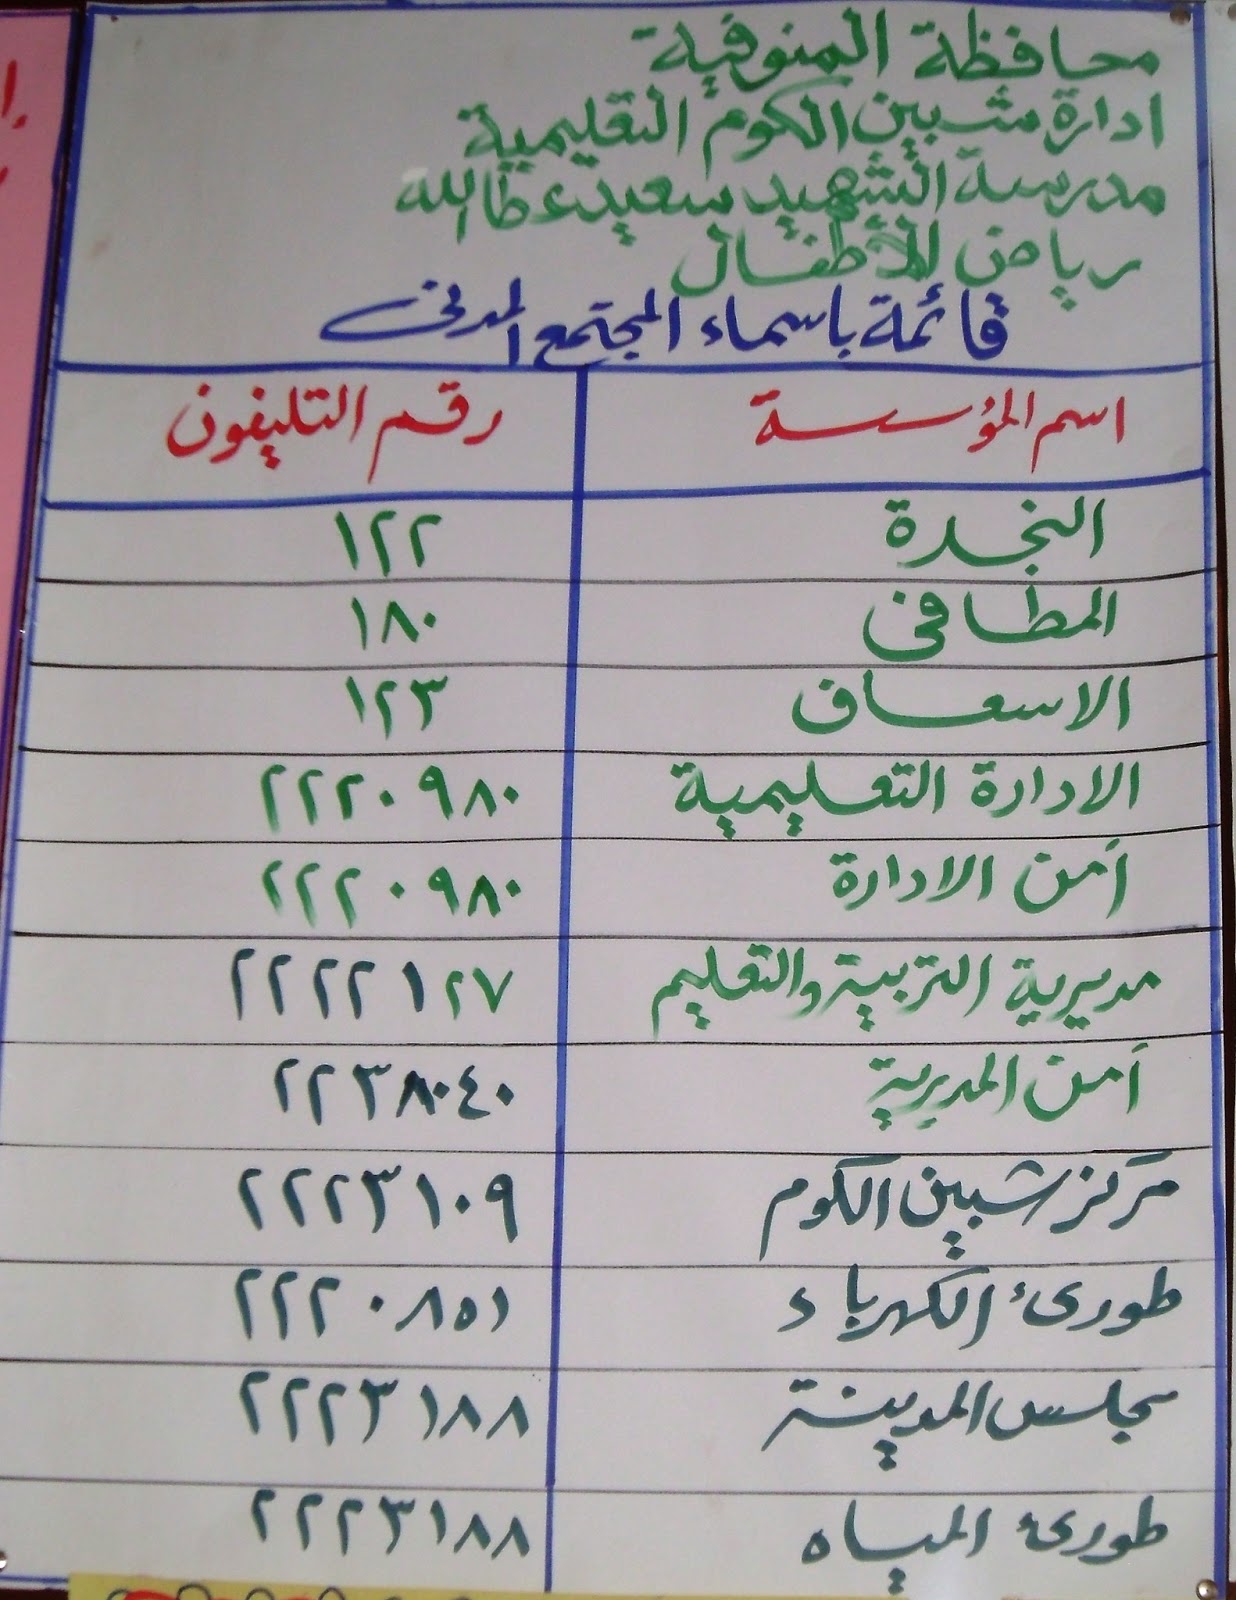 محافظة المنوفية
ادارة شبين الكوم التعليمية
مدرسة الشهيد سعيد عطاالله
رياض للأطفال
قائمة باسماء المجتمع المدنى
اسم المؤسسة رقم التليفون
النجدة ١٢٢
المطافى ١٨٠
الاسعاف ١٢٣
الادارة التعليمية ٢٢٢٠٩٨٠
أمن الادارة ٢٢٢٠٩٨٠
مديرية التربية والتعليم ٢٢٢٢١٢٧
أمن المديرية ٢٢٣٨٠٤٠
مركز شبين الكوم ٢٢٢٣١٠٩
طورىء الكهرباء ٢٢٢٠٨٥١
مجلس المدينة ٢٢٢٣١٨٨
طورىء المياه ٢٢٢٣١٨٨